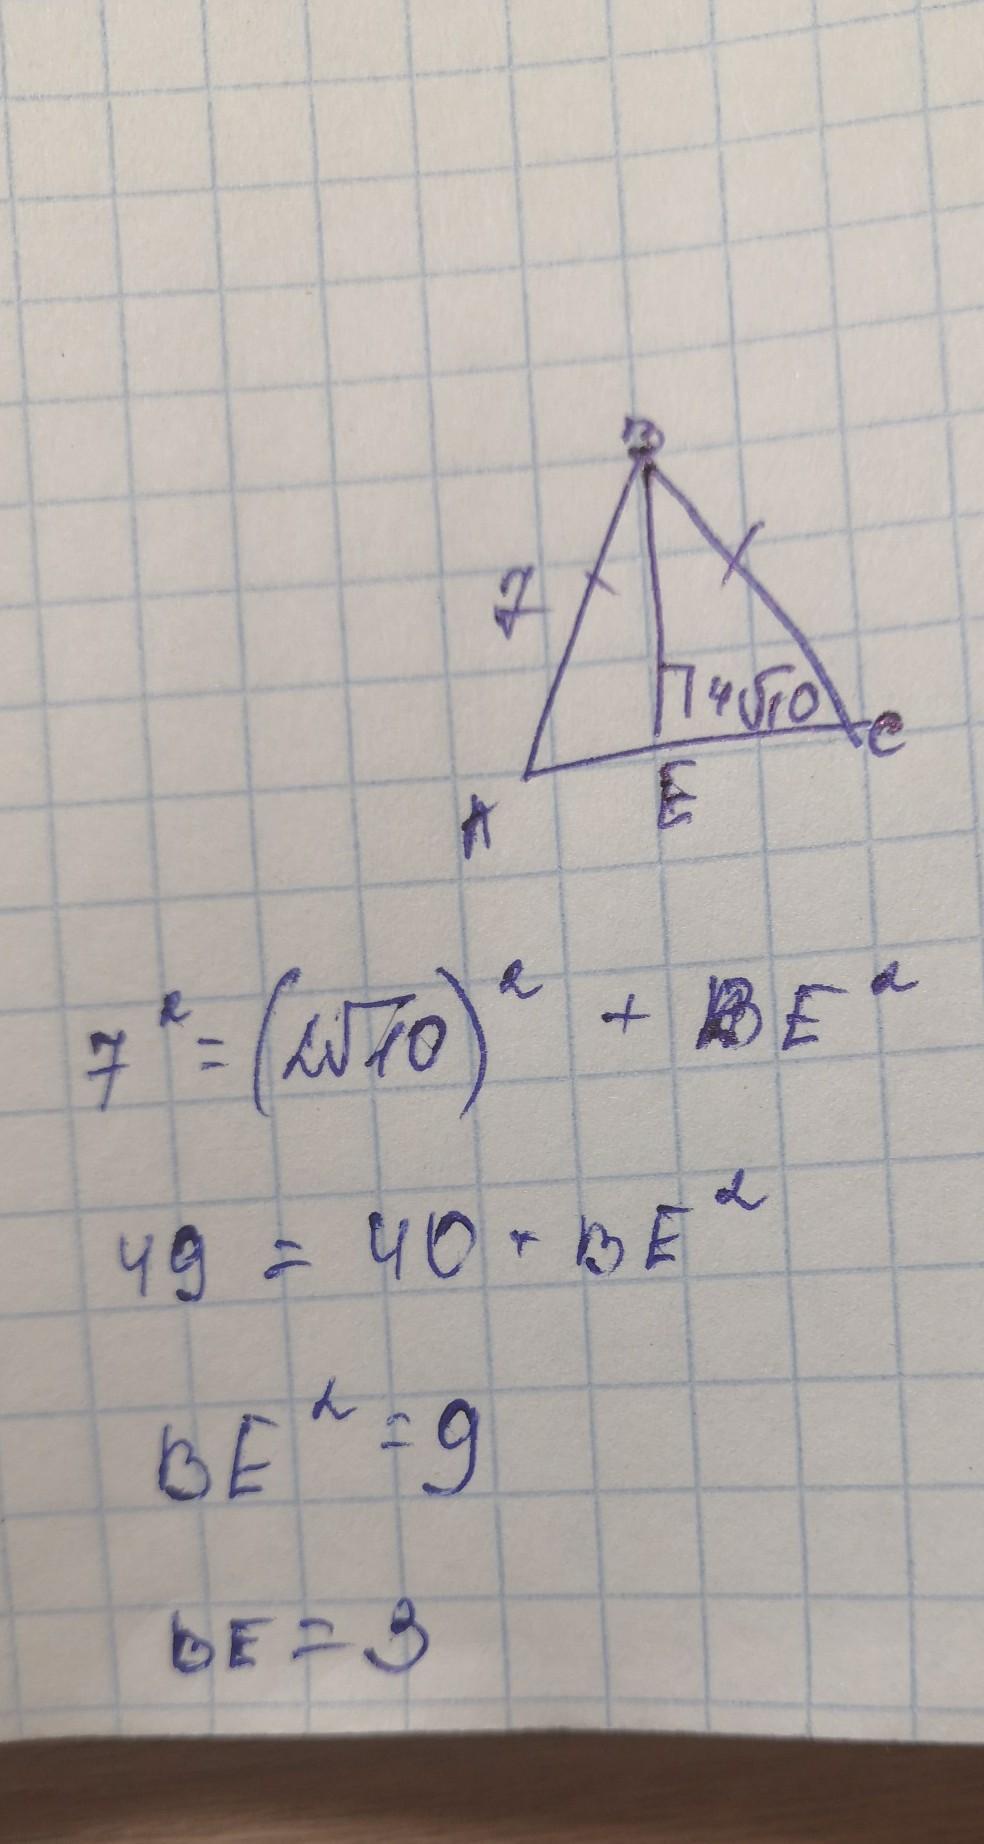 B
7
4√10
C
A
E
7² = (2√10)² + BE²
49 = 40 + BE²
BE² = 9
BE = 3